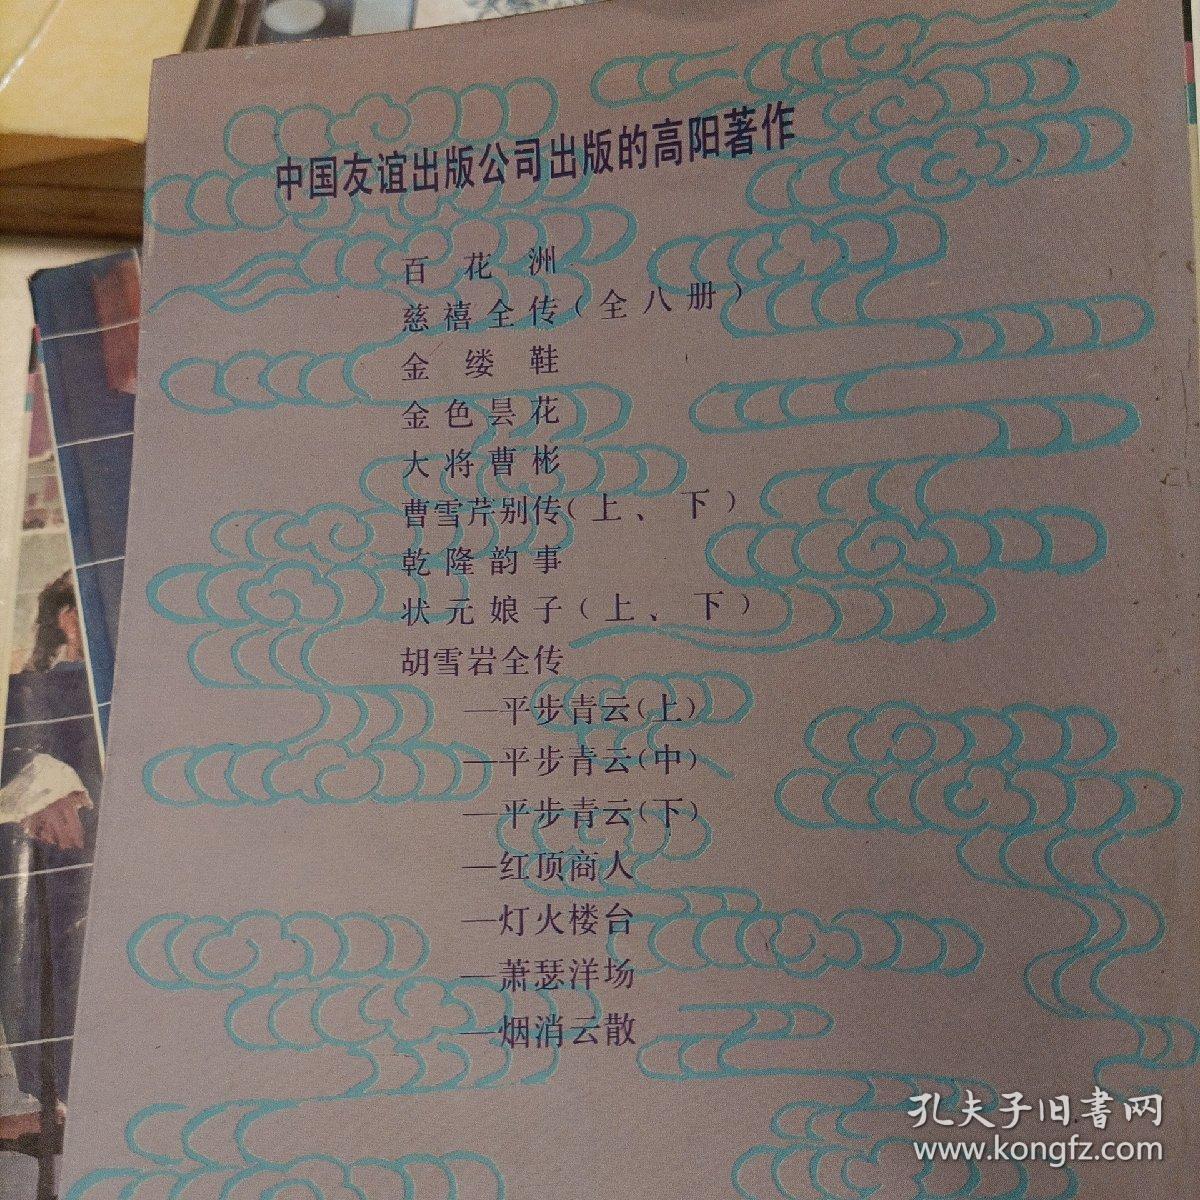 中国友谊出版公司出版的高阳著作
百花洲
慈禧全传(全八册)
金缕鞋
金色昙花
大将曹彬
曹雪芹别传(上、下)
乾隆韵事
状元娘子(上、下)
胡雪岩全传
—平步青云(上)
—平步青云(中)
—平步青云(下)
—红顶商人
—灯火楼台
—萧瑟洋场
—烟消云散
孔夫子旧书网
www.kongfz.com